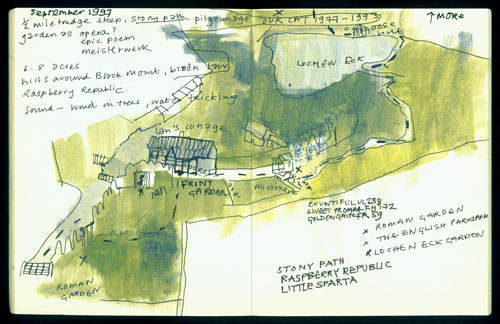 September 1997
½ mile trudge steep, stony path pilgrimage
garden as opera?
epic poem
meisterwerk
6-8 acres
hills around Black mount, bleak Law
Raspberry Republic
Sound – wind in trees, water trickling
OUR CAT 1977-1993
↑MORE
goose
hut
LOCHEN ECK
Ian's cottage
Ian
FRONT
GARDEN
allotment
BOUNTIFUL UL 238
SWEET PROMISE FH 172
GOLDEN GAIN FR 59
x ROMAN GARDEN
x THE ENGLISH PARKLAND
x LOCHEN ECK GARDEN
STONY PATH
RASPBERRY REPUBLIC
LITTLE SPARTA
ROMAN
GARDEN